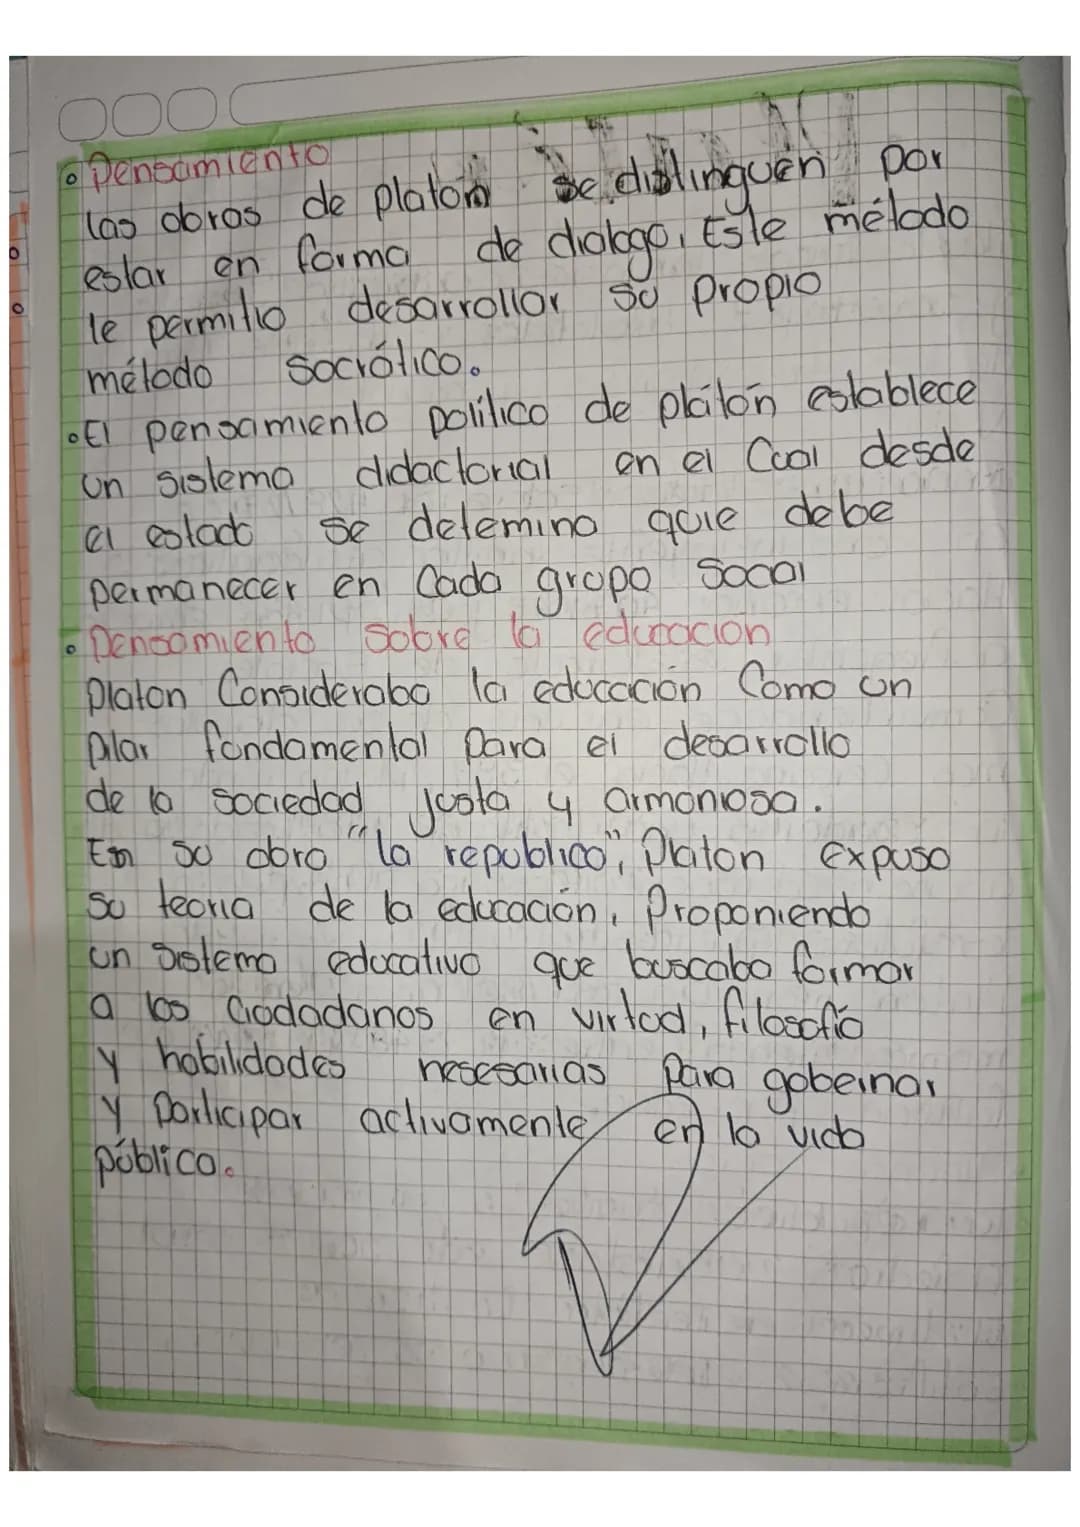 Pensamiento
las obras de platón se distinguen por
estar en forma de dialogo, Este método
le permitio desarrollar su propio
método socrático.
El pensamiento político de platón establece
un sistema didactorial en el Cual desde
el estado se detemina quie debe
permanecer en Cada grupo Socai
Pensamiento sobre la educacion
Platon Consideraba la educación Como un
pilar fundamental para el desarrollo
de la sociedad justa y armoniosa.
En su obra "la republica", Platon expuso
su teoria de la educación, Proponiendo
un sistema educativo que buscaba formar
a los Ciudadanos en virtud, filosofía
y habilidades nesesarias Para gobernar
y Participar activamente en la vida
pública.